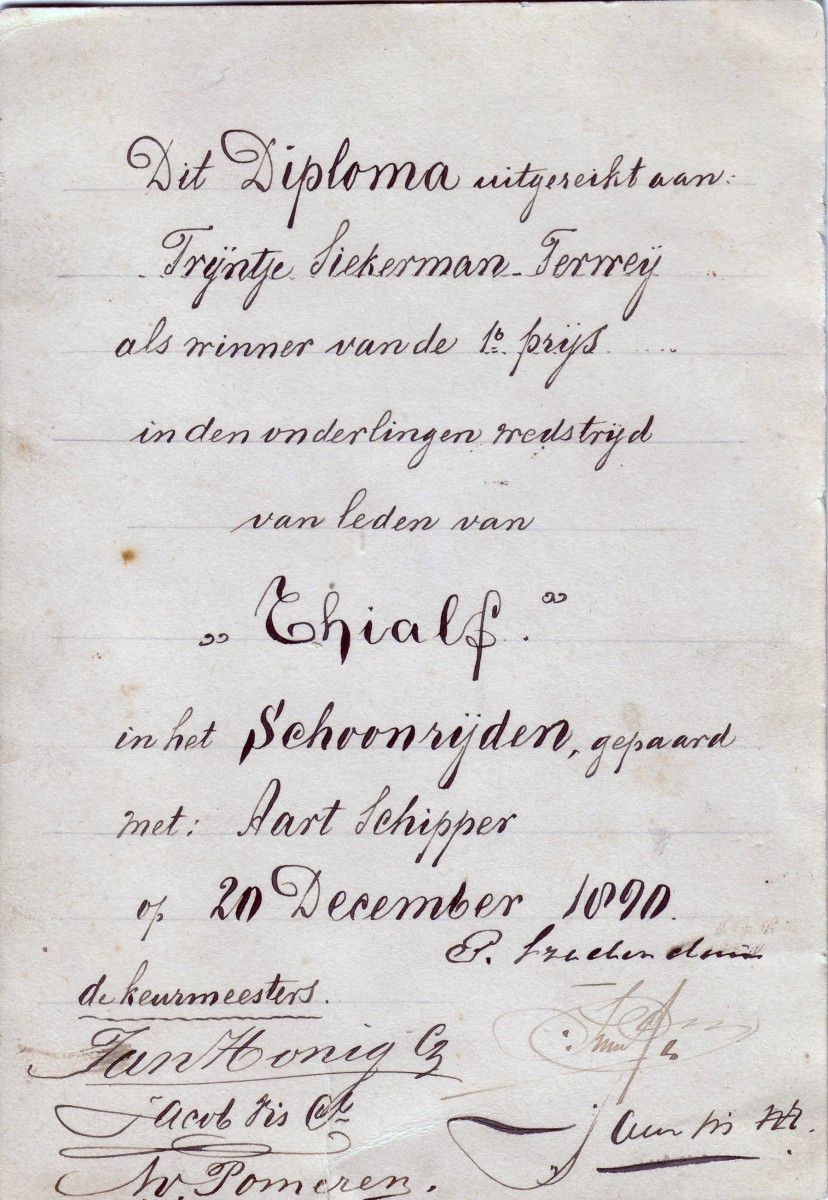 Dit Diploma uitgereikt aan:
Trijntje Siekerman-Terweij
als winner van de 1e prijs
in den onderlingen wedstrijd
van leden van
„Thialf."
in het Schoonrijden, gepaard
met: Aart Schipper
op 20 December 1890.
P.
de keurmeesters.
Jan Honig Cz
Jacob Vis Cz
N v. Pomeren.